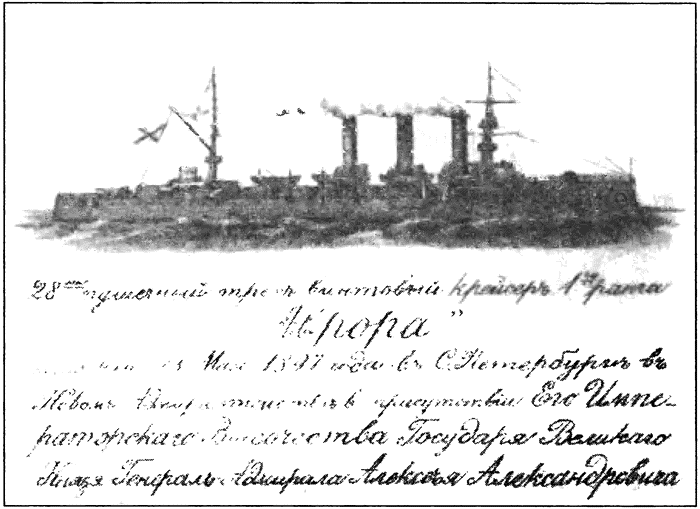 28ми пушечный трехъ винтовый крейсеръ 1го ранга
"Аврора"
23 Мая 1897 года въ С. Петербургѣ въ
Новомъ въ присутствіи Его Импе-
раторскаго Высочества Государя Великаго
Князя Генералъ Адмирала Алексѣя Александровича